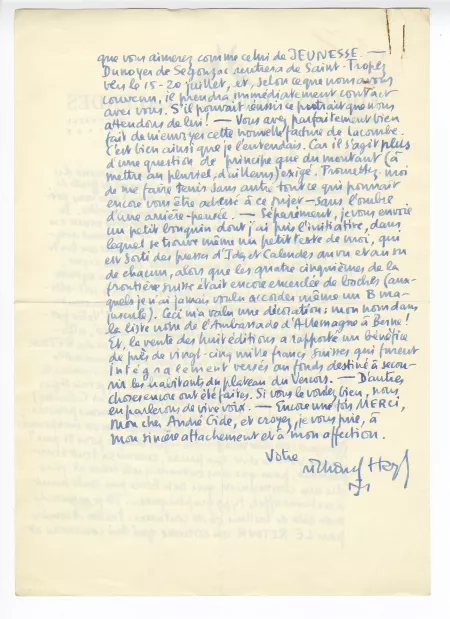 que vous aimerez comme celui de JEUNESSE. —
Dunoyer de Segonzac rentrera de Saint-Tropez
vers le 15-20 juillet, et, selon ce que nous avons
convenu, il prendra immédiatement contact
avec vous. S'il pouvait réussir ce portrait que nous
attendons de lui! — Vous avez parfaitement bien
fait de m'envoyer cette nouvelle facture de Lacombe.
C'est bien ainsi que je l'entendais. Car il s'agit plus
d'une question de principe que du montant (à
mettre au pluriel, d'ailleurs) exigé. Promettez-moi
de me faire tenir sans autre tout ce qui pourrait
encore vous être adressé à ce sujet – sans l'ombre
d'une arrière-pensée. — Séparément, je vous envoie
un petit bouquin dont j'ai pris l'initiative, dans
lequel se trouve même un petit texte de moi, qui
est sorti des presses d'Ides et Calendes au vu et au su
de chacun, alors que les quatre cinquièmes de la
frontière suisse était encore encerclée de boches (aux-
quels je n'ai jamais voulu accorder même un B ma-
juscule). Ceci m'a valu une décoration: mon nom dans
la liste noire de l'Ambassade d'Allemagne à Berne!
Et, la vente des huit éditions a rapporté un bénéfice
de près de vingt-cinq mille francs suisses qui furent
intégralement versés au fonds destiné à secou-
rir les habitants du plateau du Vercors. — D'autres
choses encore ont été faites. Si vous le voulez bien, nous
en parlerons de vive voix. — Encore une fois MERCI,
mon cher André Gide, et croyez, je vous prie, à
mon sincère attachement et à mon affection.
Votre